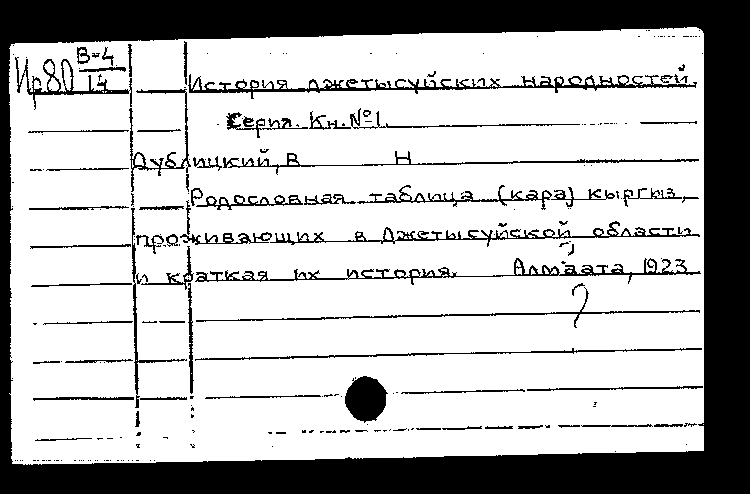 Ир80 В-4/14
История джетысуйских народностей.
Серия. Кн. №1.
Дублицкий, В Н
Родословная таблица (кара) кыргыз,
проживающих в Джетысуйской области
и краткая их история. Алмаата, 1923
?